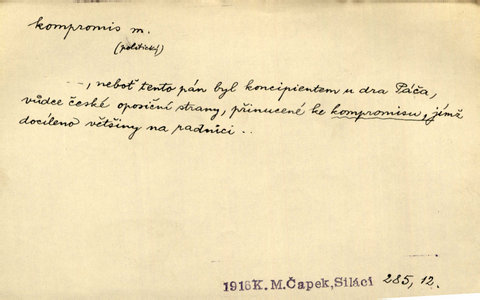 kompromis m.
(politický)
---, neboť tento pán byl koncipientem u dra Páča,
vůdce české oposiční strany, přinucené ke kompromisu, jímž
docíleno většiny na radnici ..
1916 K. M. Čapek, Siláci 285, 12.